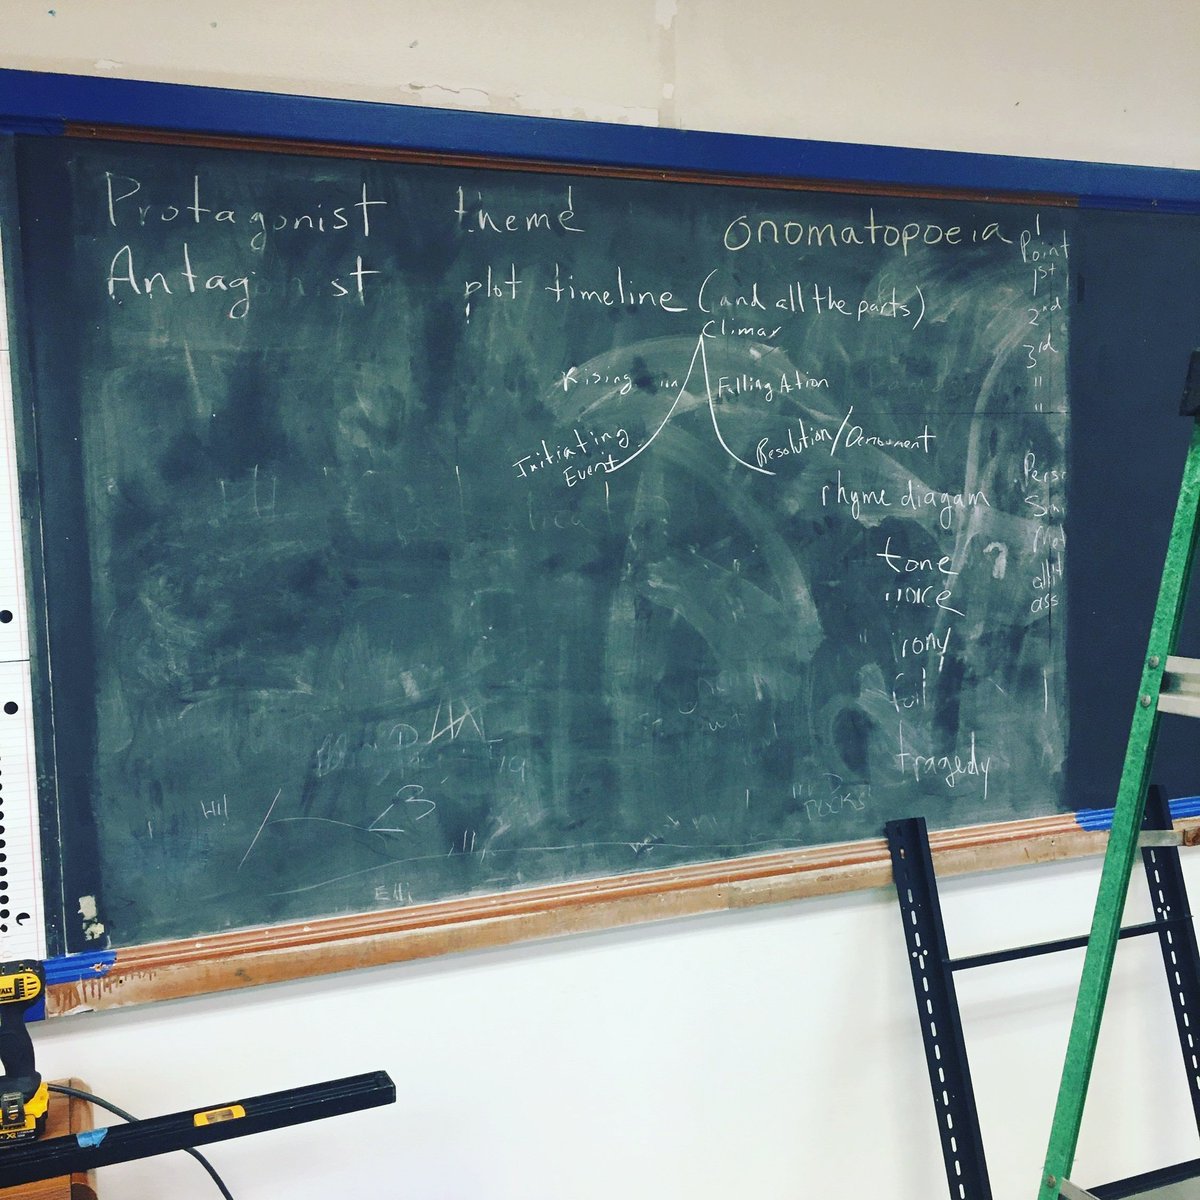 Protagonist
Antag st
theme
plot timeline (and all the parts)
Climax
Rising
Falling Action
Initiating
Event
Resolution/
rhyme diagam
tone
irony
foil
tragedy
onomatopoeia
Point
1st
2nd
3rd
"
"
Pers
allit
ass
Hi!
3
Elli
rocks